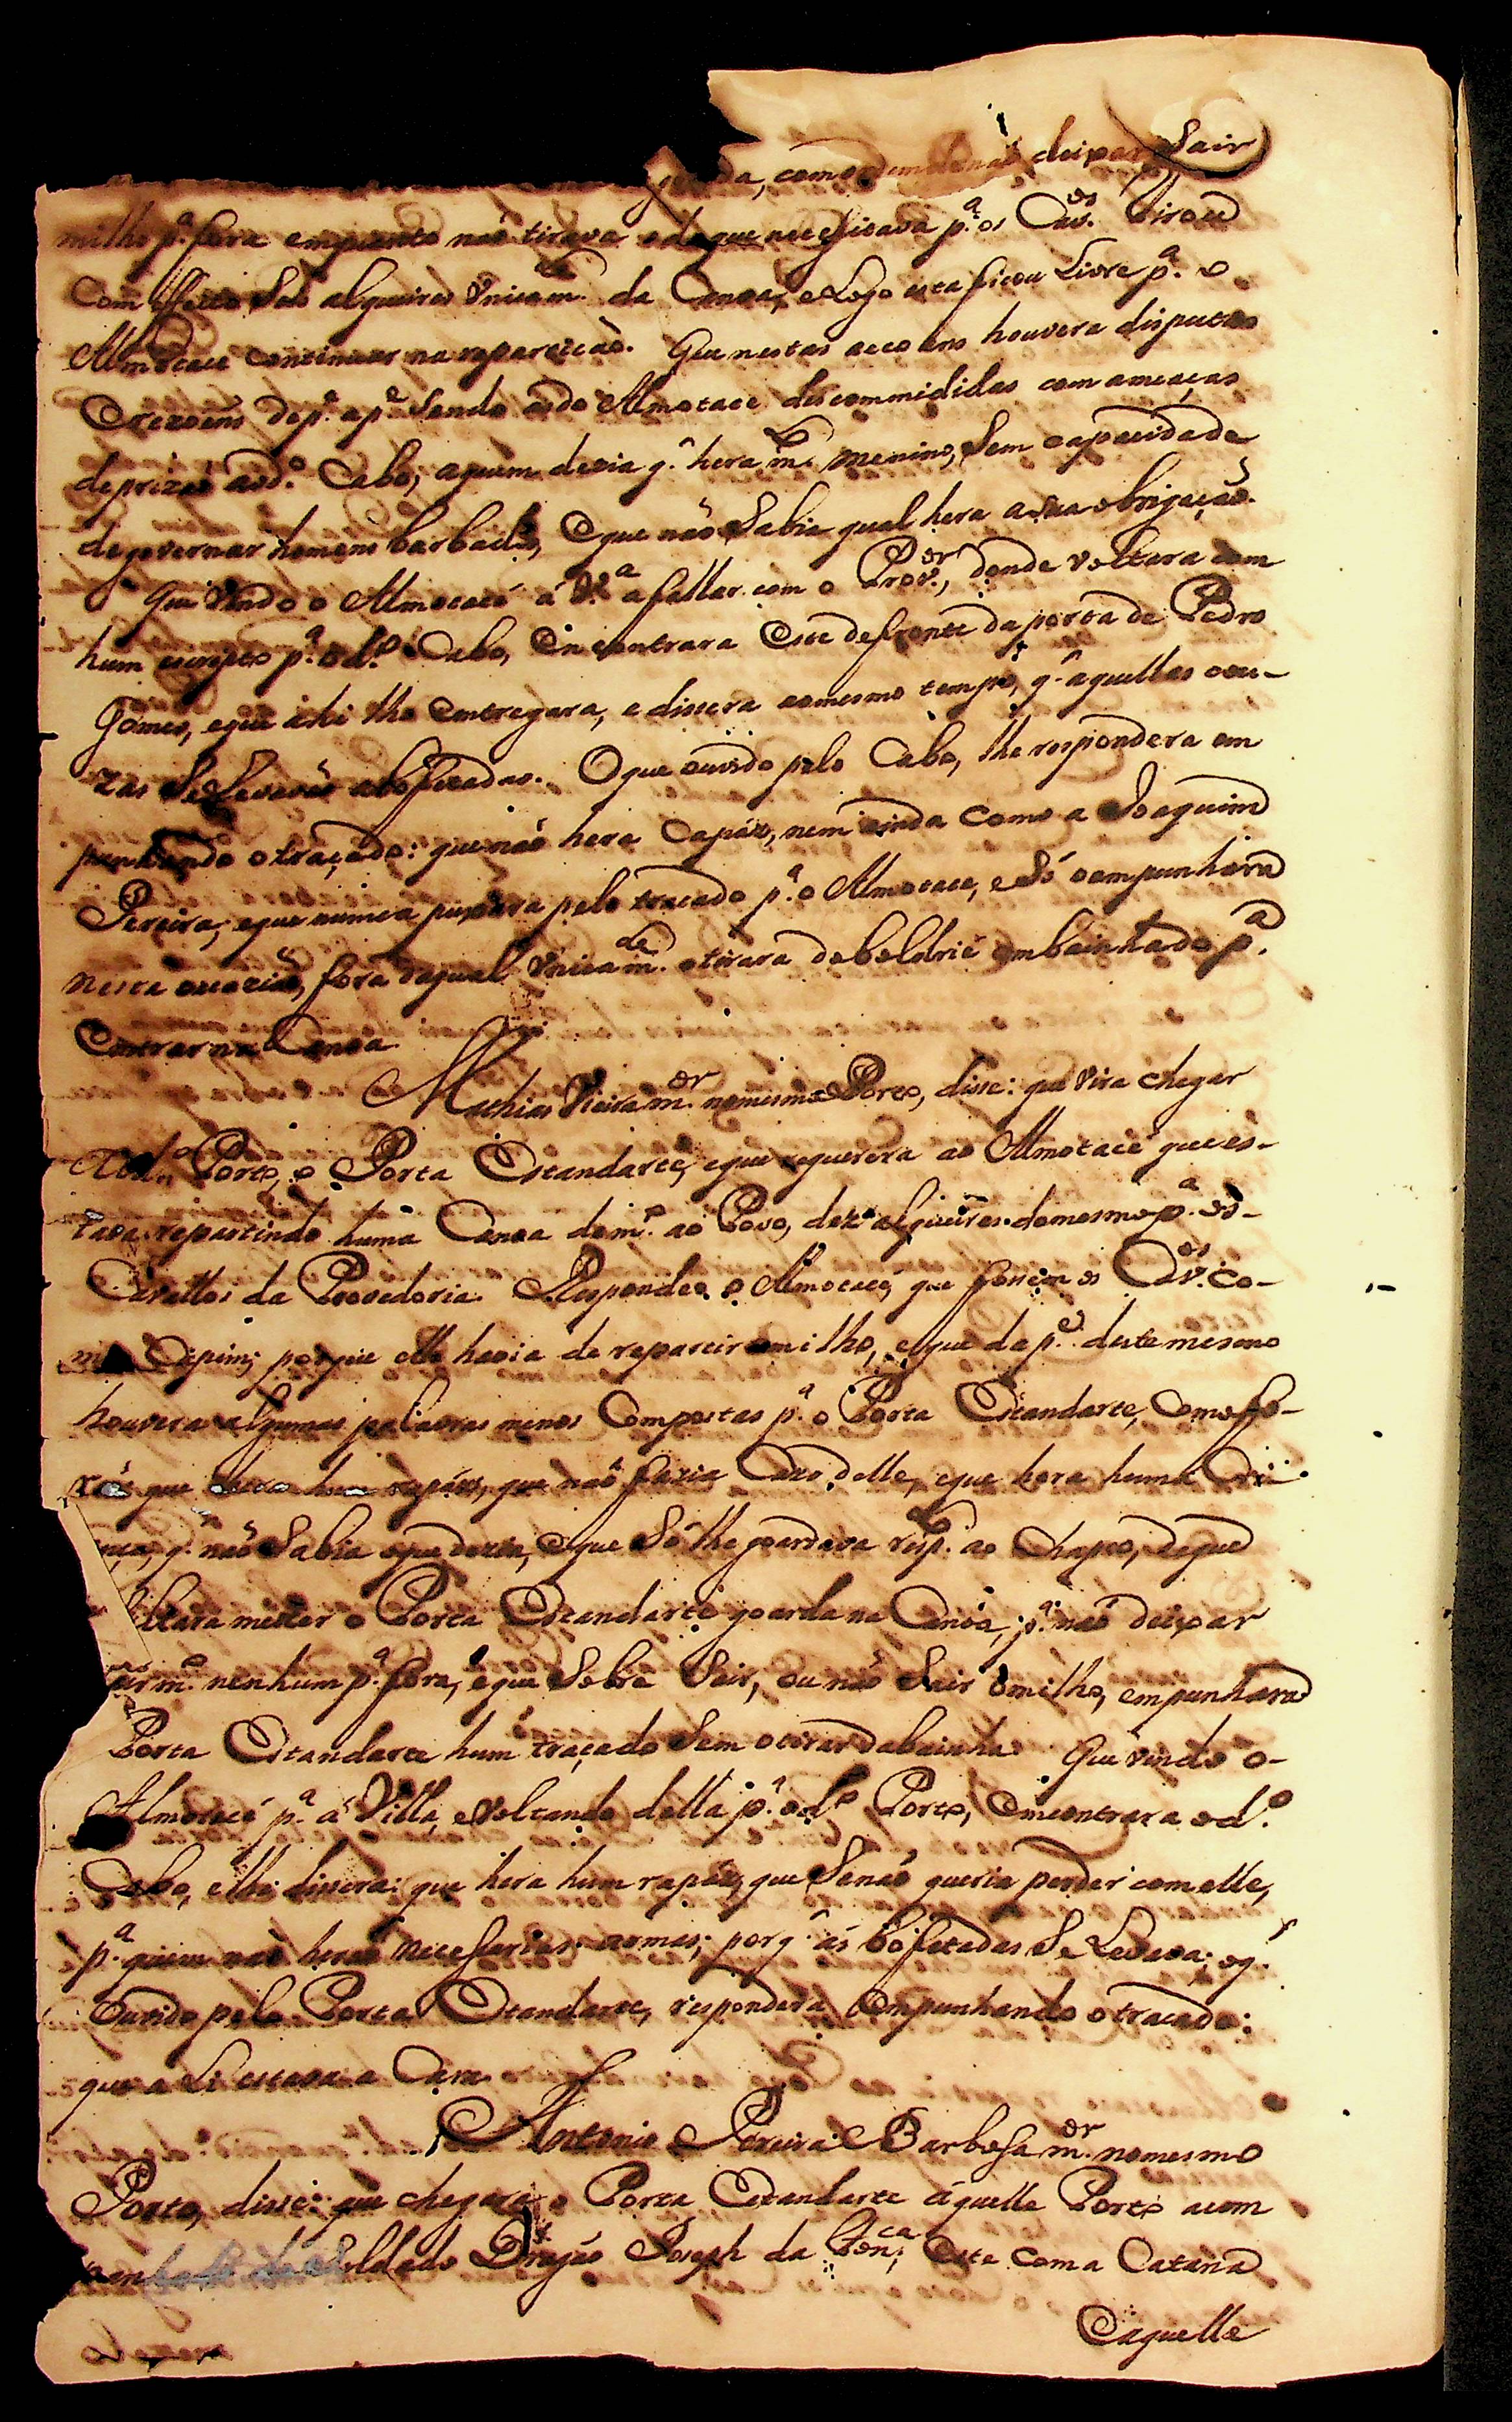 goarda, como deixar Sair
milho p.ª fora emquanto não tirava o de que necessitava p.ª os Cav.os Tirou
Com effeito Seis alqueires Unicam.te da Canoa, e Logo esta ficou Livre p.ª o
Almotace Continuar na repartição. Que nestas accoens houvera disputas
e rezoens de p.e a p.e Sendo as do Almotace descommedidas com ameaças
de prizão ao d.o Cabo, aquem dezia q. hera m.to menino, Sem capacidade
de governar homens barbados, e que não Sabia qual hera a Sua obrigação.
Que vindo o Almotacé á V.ª a fallar com o Prov.or, donde voltara com
hum escripto p.ª o d.o Cabo, Encontrara Este defronte da porta de Pedro
Gomes, e que ahi lho Entregara, e dissera ao mesmo tempo, q. aquellas cou-
zas Se Levavão a bofetadas. O que ouvido pelo Cabo, lhe respondera em
punhando o traçado: que não hera Capáz, nem ainda Como a Joaquim
Pereira, e que nunca puxara pelo traçado p.ª o Almotace, e Só o empunhara
nesta ocazião, fora da qual Unicam.te o tirara do boldrié embainhado p.ª
Entrar na Canoa.
Mathias Vieira m.or no mesmo Porto, disse: que vira chegar
ao d.o Porto, o Porta Estandarte, e que requerera ao Almotacé que es-
tava repartindo huma Canoa de m.o ao Povo, dez alqueires do mesmo p.ª os-
Cavallos da Provedoria. Respondeo o Almotacé, que fossem os Cav.os Co-
mer Capim; porque elle havia de repartir o milho, e que da p.e deste mesmo
houvera algumas palavras menos Compostas p.ª o Porta Estandarte, Como fo-
rão que hera hum rapáz, que não fazia Cazo delle, e que hera huma Cri-
ança, q. não Sabia o que dezia, e que Só lhe goardava resp.to ao Chapeo, de que
rezultara metter o Porta Estandarte goarda na Canoa, p.ª não deixar
Sair m.o nenhum p.ª fora, e que Sobre Sair, ou não Sair o milho, empunhara o
Porta Estandarte hum traçado Sem o tirar da bainha. Que vindo o-
Almotacé p.ª a Villa, e voltando della p.ª o d.o Porto, Emcontrara o d.o
Cabo, e lhe dissera: que hera hum rapáz, que Senão queria perder com elle,
p.ª quem não herão necessarias armas; porq. ás bofetadas Se Levava; o q.
Ouvido pelo Porta Estandarte, respondera Empunhando o traçado:
que a Li estava a Cara.
Antonio Pereira Barbosa m.or no mesmo
Porto, disse: que chegara o Porta Estandarte áquelle Porto acom
panhado do Soldado Dragão Joseph da Fon.ca, Este com a Catana
Eaquelle